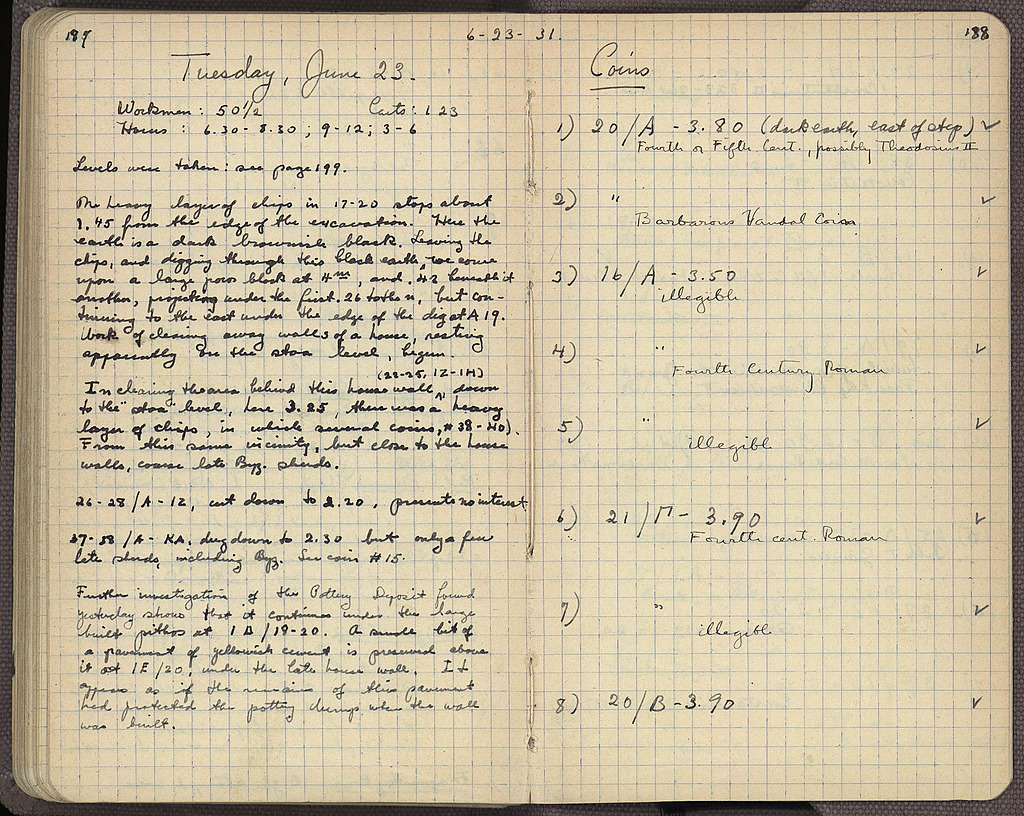 187
6-23-31.
188
Tuesday, June 23.
Workmen: 50 1/2 Carts: 123
Hours: 6.30-8.30; 9-12; 3-6
Levels were taken: see page 199.
The heavy layer of chips in 17-20 stops about
1.45 from the edge of the excavation. Here the
earth is a dark brownish black. Leaving the
chips, and digging through this black earth we come
upon a large poros block at 4m, and .42 beneath it
another, projecting under the first .26 to the n, but con-
tinuing to the east under the edge of the dig at A 19.
Work of clearing away walls of a house, resting
apparently on the stoa level, begun.
(22-25, IZ-IH)
In clearing the area behind this house wall, down
to the "stoa" level, here 3.25, there was a heavy
layer of chips, in which several coins, #38-40).
From this same vicinity, but close to the house
walls, coarse late Byz. sherds.
26-28/A-12, cut down to 2.20, presents no interest
37-38/A-KA, dug down to 2.30 but only a few
late sherds, including Byz. See coin #15.
Further investigation of the Pottery Deposit found
yesterday shows that it continues under the large
built pithos at 1Δ/19-20. A small bit of
a pavement of yellowish cement is preserved above
it at 1E/20, under the late house wall. It
appears as if the remains of this pavement
had protected the pottery dump when the wall
was built.
Coins
1) 20/A - 3.80 (dark earth, east of step) ✓
Fourth or Fifth Cent., possibly Theodosius II
2) " ✓
Barbarous Vandal Coin
3) 16/A - 3.50 ✓
illegible
4) " ✓
Fourth Century Roman
5) " ✓
illegible
6) 21/Π - 3.90 ✓
Fourth cent. Roman
7) " ✓
illegible
8) 20/B - 3.90 ✓